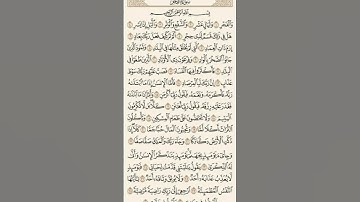 سورة الفجر
بِسْمِ اللَّهِ الرَّحْمَٰنِ الرَّحِيمِ
وَالْفَجْرِ وَلَيَالٍ عَشْرٍ وَالشَّفْعِ وَالْوَتْرِ وَاللَّيْلِ إِذَا يَسْرِ
هَلْ فِي ذَٰلِكَ قَسَمٌ لِذِي حِجْرٍ أَلَمْ تَرَ كَيْفَ فَعَلَ رَبُّكَ بِعَادٍ
إِرَمَ ذَاتِ الْعِمَادِ الَّتِي لَمْ يُخْلَقْ مِثْلُهَا فِي الْبِلَادِ وَثَمُودَ الَّذِينَ
جَابُوا الصَّخْرَ بِالْوَادِ وَفِرْعَوْنَ ذِي الْأَوْتَادِ الَّذِينَ طَغَوْا فِي
الْبِلَادِ فَأَكْثَرُوا فِيهَا الْفَسَادَ فَصَبَّ عَلَيْهِمْ رَبُّكَ سَوْطَ
عَذَابٍ إِنَّ رَبَّكَ لَبِالْمِرْصَادِ فَأَمَّا الْإِنْسَانُ إِذَا مَا ابْتَلَاهُ رَبُّهُ
فَأَكْرَمَهُ وَنَعَّمَهُ فَيَقُولُ رَبِّي أَكْرَمَنِ وَأَمَّا إِذَا مَا ابْتَلَاهُ
فَقَدَرَ عَلَيْهِ رِزْقَهُ فَيَقُولُ رَبِّي أَهَانَنِ كَلَّا بَلْ لَا تُكْرِمُونَ
الْيَتِيمَ وَلَا تَحَاضُّونَ عَلَىٰ طَعَامِ الْمِسْكِينِ وَتَأْكُلُونَ
التُّرَاثَ أَكْلًا لَمًّا وَتُحِبُّونَ الْمَالَ حُبًّا جَمًّا كَلَّا إِذَا
دُكَّتِ الْأَرْضُ دَكًّا دَكًّا وَجَاءَ رَبُّكَ وَالْمَلَكُ صَفًّا صَفًّا
وَجِيءَ يَوْمَئِذٍ بِجَهَنَّمَ يَوْمَئِذٍ يَتَذَكَّرُ الْإِنْسَانُ وَأَنَّىٰ
لَهُ الذِّكْرَىٰ يَقُولُ يَا لَيْتَنِي قَدَّمْتُ لِحَيَاتِي فَيَوْمَئِذٍ
لَا يُعَذِّبُ عَذَابَهُ أَحَدٌ وَلَا يُوثِقُ وَثَاقَهُ أَحَدٌ يَا أَيَّتُهَا
النَّفْسُ الْمُطْمَئِنَّةُ ارْجِعِي إِلَىٰ رَبِّكِ رَاضِيَةً مَرْضِيَّةً